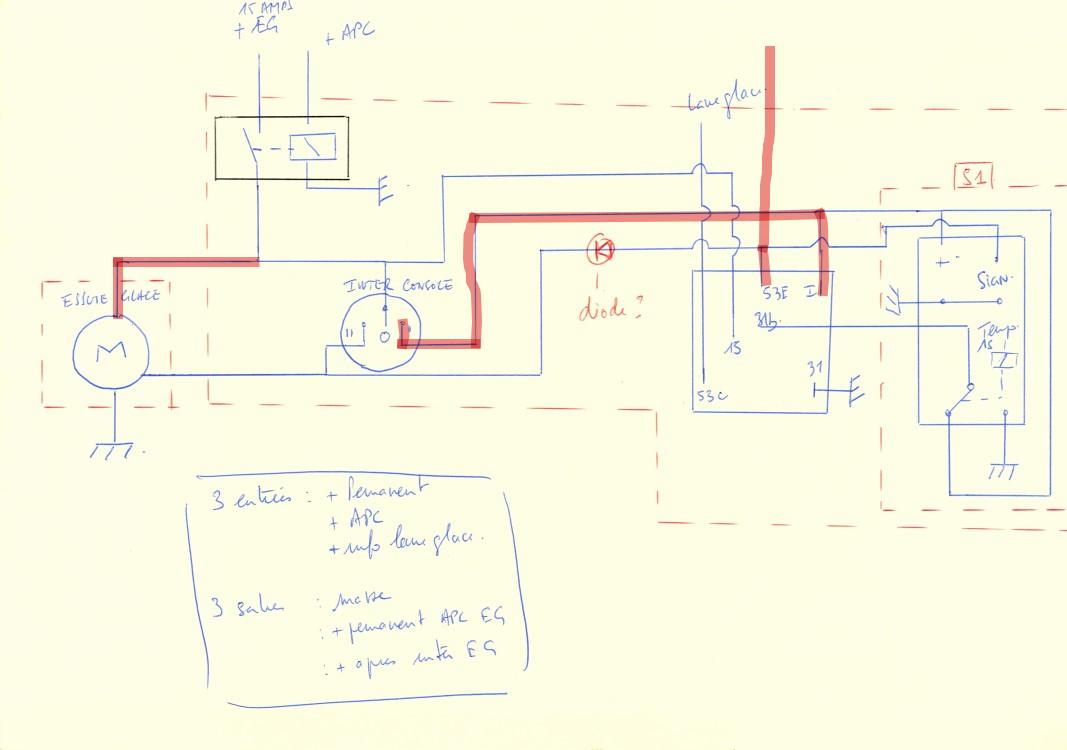 15 AMPS
+ EG
+ APC
lave glace
S1
ESSUIE GLACE
INTER CONSOLE
M
II
O
I
K
diode ?
53E
I
31b
15
31
53c
+
-
Sign.
Temp.
15
3 entrées : + Permanent
+ APC
+ info lave glace.
3 sorties : masse
: + permanent APC EG
: + apres inter EG